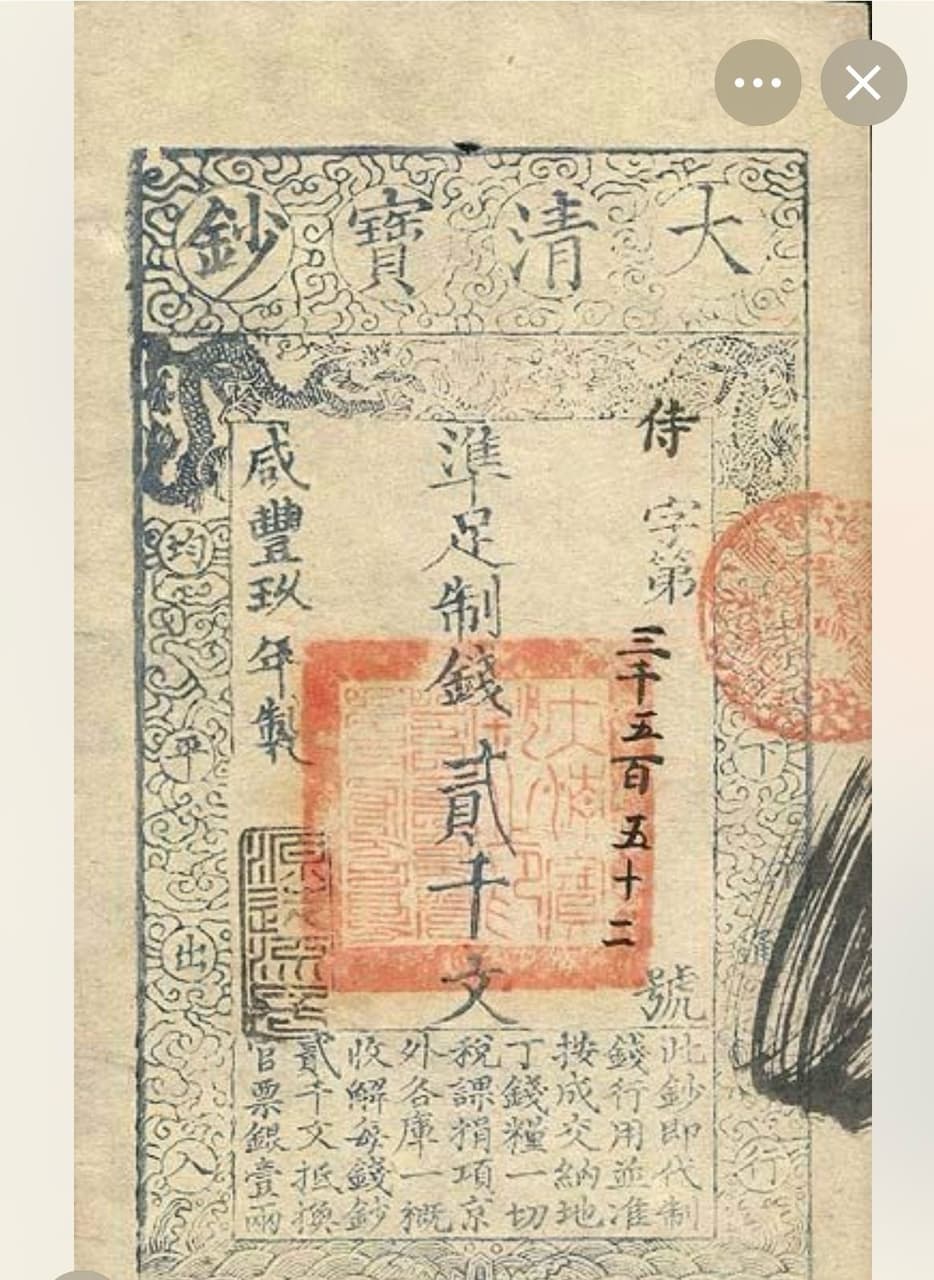 大清寶鈔
下
行
侍字第三千五百五十二號
準足制錢貳千文
咸豐玖年製
均平出入
此鈔即代制
錢行用並准
按成交納地
丁錢糧一切
稅課捐項京
外各庫一概
收解每錢鈔
貳千文抵換
官票銀壹兩